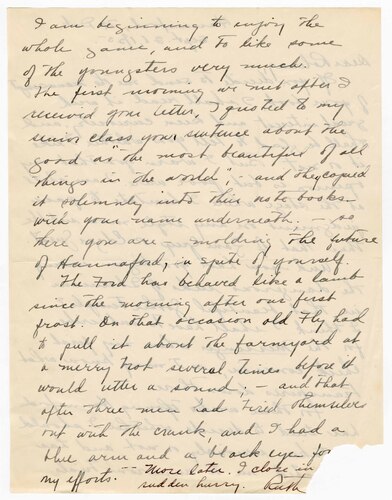 I am beginning to enjoy the
whole game, and to like some
of the youngsters very much.
The first morning we met after I
received your letter, I quoted to my
senior class your sentence about the
good as "the most beautiful of all
things in the world", - and they copied
it solemnly into their note books
with your name underneath, - so
there you are - molding the future
of Hannaford, in spite of yourself.
The Ford has behaved like a lamb
since the morning after our first
frost. On that occasion old Fly had
to pull it about the farmyard at
a merry trot several times before it
would utter a sound. - and that
after three men had tired themselves
out with the crank, and I had a
blue arm and a black eye for
my efforts. -- More later. I close in
sudden hurry. Ruth